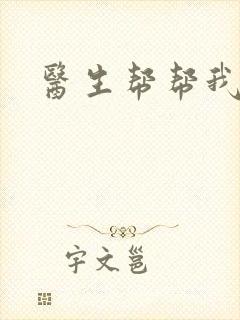 醫生帮帮我
宇文邕